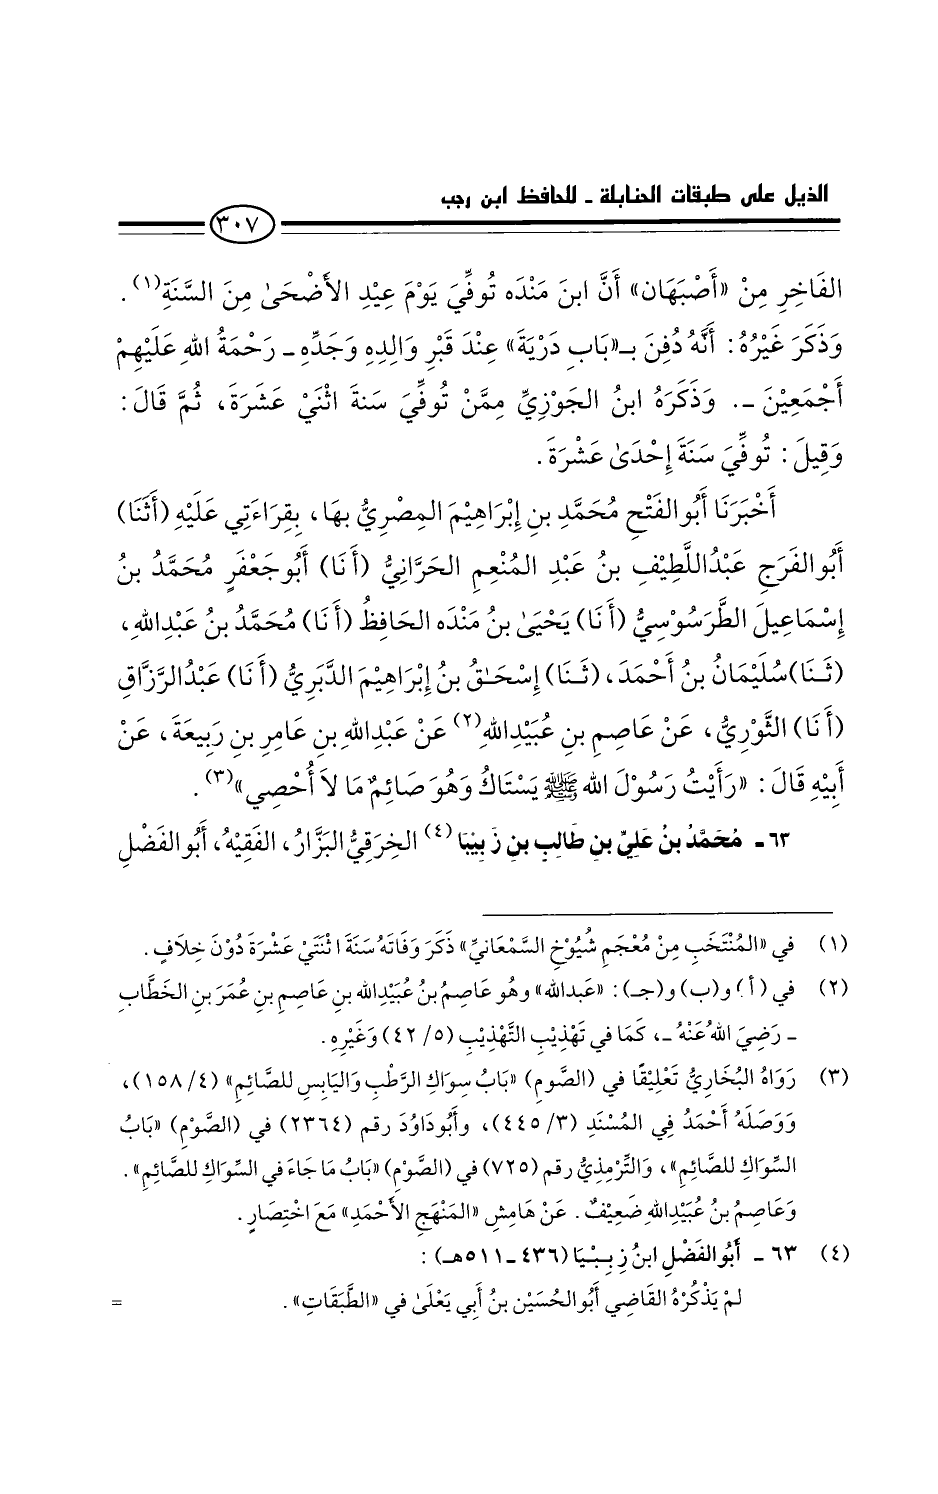 الذيل على طبقات الحنابلة - للحافظ ابن رجب
٣٠٧
الفَاخِرِ مِنْ «أَصْبَهَان» أَنَّ ابنَ مَنْدَه تُوفِّيَ يَوْمَ عِيْدِ الأَضْحَىٰ مِنَ السَّنَةِ(١).
وَذَكَرَ غَيْرُهُ: أَنَّهُ دُفِنَ بـ«بَابِ دَرْيَةَ» عِنْدَ قَبْرِ وَالِدِهِ وَجَدِّهِ - رَحْمَةُ اللهِ عَلَيْهِمْ
أَجْمَعِيْنَ -. وَذَكَرَهُ ابنُ الجَوْزِيِّ مِمَّنْ تُوفِّيَ سَنةَ اثْنَيْ عَشَرَةَ، ثُمَّ قَالَ:
وَقِيلَ: تُوفِّيَ سَنَةَ إِحْدَىٰ عَشْرَةَ.
أَخْبَرَنَا أَبُو الفَتْحِ مُحَمَّدِ بنِ إِبْرَاهِيْمَ المِصْرِيُّ بهَا، بِقِرَاءَتِي عَلَيْهِ (أَثَنَا)
أَبُو الفَرَجِ عَبْدُاللَّطِيْفِ بنُ عَبْدِ المُنْعِمِ الحَرَّانِيُّ (أَنَا) أَبُو جَعْفَرٍ مُحَمَّدُ بنُ
إِسْمَاعِيلَ الطَّرَسُوْسِيُّ (أَنَا) يَحْيَىٰ بنُ مَنْدَه الحَافِظُ (أَنَا) مُحَمَّدُ بنُ عَبْدِاللهِ،
(ثَنَا) سُلَيْمَانُ بنُ أَحْمَدَ، (ثَنَا) إِسْحَٰقُ بنُ إِبْرَاهِيْمَ الدَّبَرِيُّ (أَنَا) عَبْدُالرَّزَّاقِ
(أَنَا) الثَّوْرِيُّ، عَنْ عَاصِمِ بنِ عُبَيْدِاللهِ(٢) عَنْ عَبْدِاللهِ بنِ عَامِرِ بنِ رَبِيعَةَ، عَنْ
أَبِيْهِ قَالَ: «رَأَيْتُ رَسُوْلَ اللهِ ﷺ يَسْتَاكُ وَهُوَ صَائِمٌ مَا لاَ أُحْصِي»(٣).
٦٣ - مُحَمَّدُ بنُ عَلِيِّ بنِ طَالِبِ بنِ زَبِيْبَا(٤) الخِرَقِيُّ البَزَّارُ، الفَقِيْهُ، أَبُو الفَضْلِ
(١) في «المُنْتَخَبِ مِنْ مُعْجَمِ شُيُوْخِ السَّمْعَانِيِّ» ذَكَرَ وَفَاتَهُ سَنَةَ اثْنَتَيْ عَشْرَةَ دُوْنَ خِلاَفٍ.
(٢) في (أ) و(ب) و(جـ): «عَبدالله» وهُو عَاصِمُ بنُ عُبَيْدِالله بنِ عَاصِمِ بنِ عُمَرَ بنِ الخَطَّابِ
- رَضِيَ اللهُ عَنْهُ -، كَمَا في تَهْذِيْبِ التَّهْذِيْبِ (٥/ ٤٢) وَغَيْرِهِ.
(٣) رَوَاهُ البُخَارِيُّ تَعْلِيْقًا في (الصَّوم) «بَابُ سِوَاكِ الرَّطْبِ وَاليَابِسِ للصَّائِمِ» (٤/ ١٥٨)،
وَوَصَلَهُ أَحْمَدُ فِي المُسْنَدِ (٣/ ٤٤٥)، وأَبُو دَاوُدَ رقم (٢٣٦٤) في (الصَّوْمِ) «بَابُ
السِّوَاكِ للصَّائِمِ»، وَالتِّرْمِذِيُّ رقم (٧٢٥) في (الصَّوْمِ) «بَابُ مَا جَاءَ في السِّوَاكِ للصَّائِمِ».
وَعَاصِمُ بنُ عُبَيْدِاللهِ ضَعِيْفٌ. عَنْ هَامِشِ «المَنْهَجِ الأَحْمَدِ» مَعَ اخْتِصَارٍ.
(٤) ٦٣ - أَبُو الفَضْلِ ابنُ زِبِبْيَا (٤٣٦ - ٥١١هـ):
لَمْ يَذْكُرْهُ القَاضِي أَبُو الحُسَيْنِ بنُ أَبِي يَعْلَىٰ في «الطَّبَقَاتِ».
=